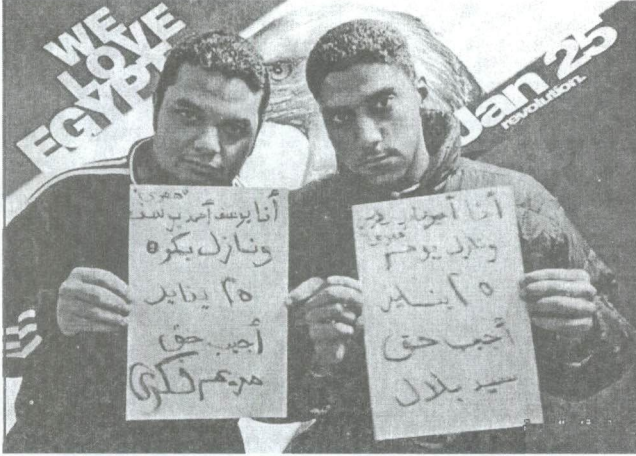 WE
LOVE
EGYPT
Jan 25
revolution.
أنا يوسف أحمد يوسف
ونازل بكره
٢٥ يناير
أجيب حق
مريم فكرى
أنا أحمد
ونازل يوم
٢٥ يناير
أجيب حق
سيد بلال